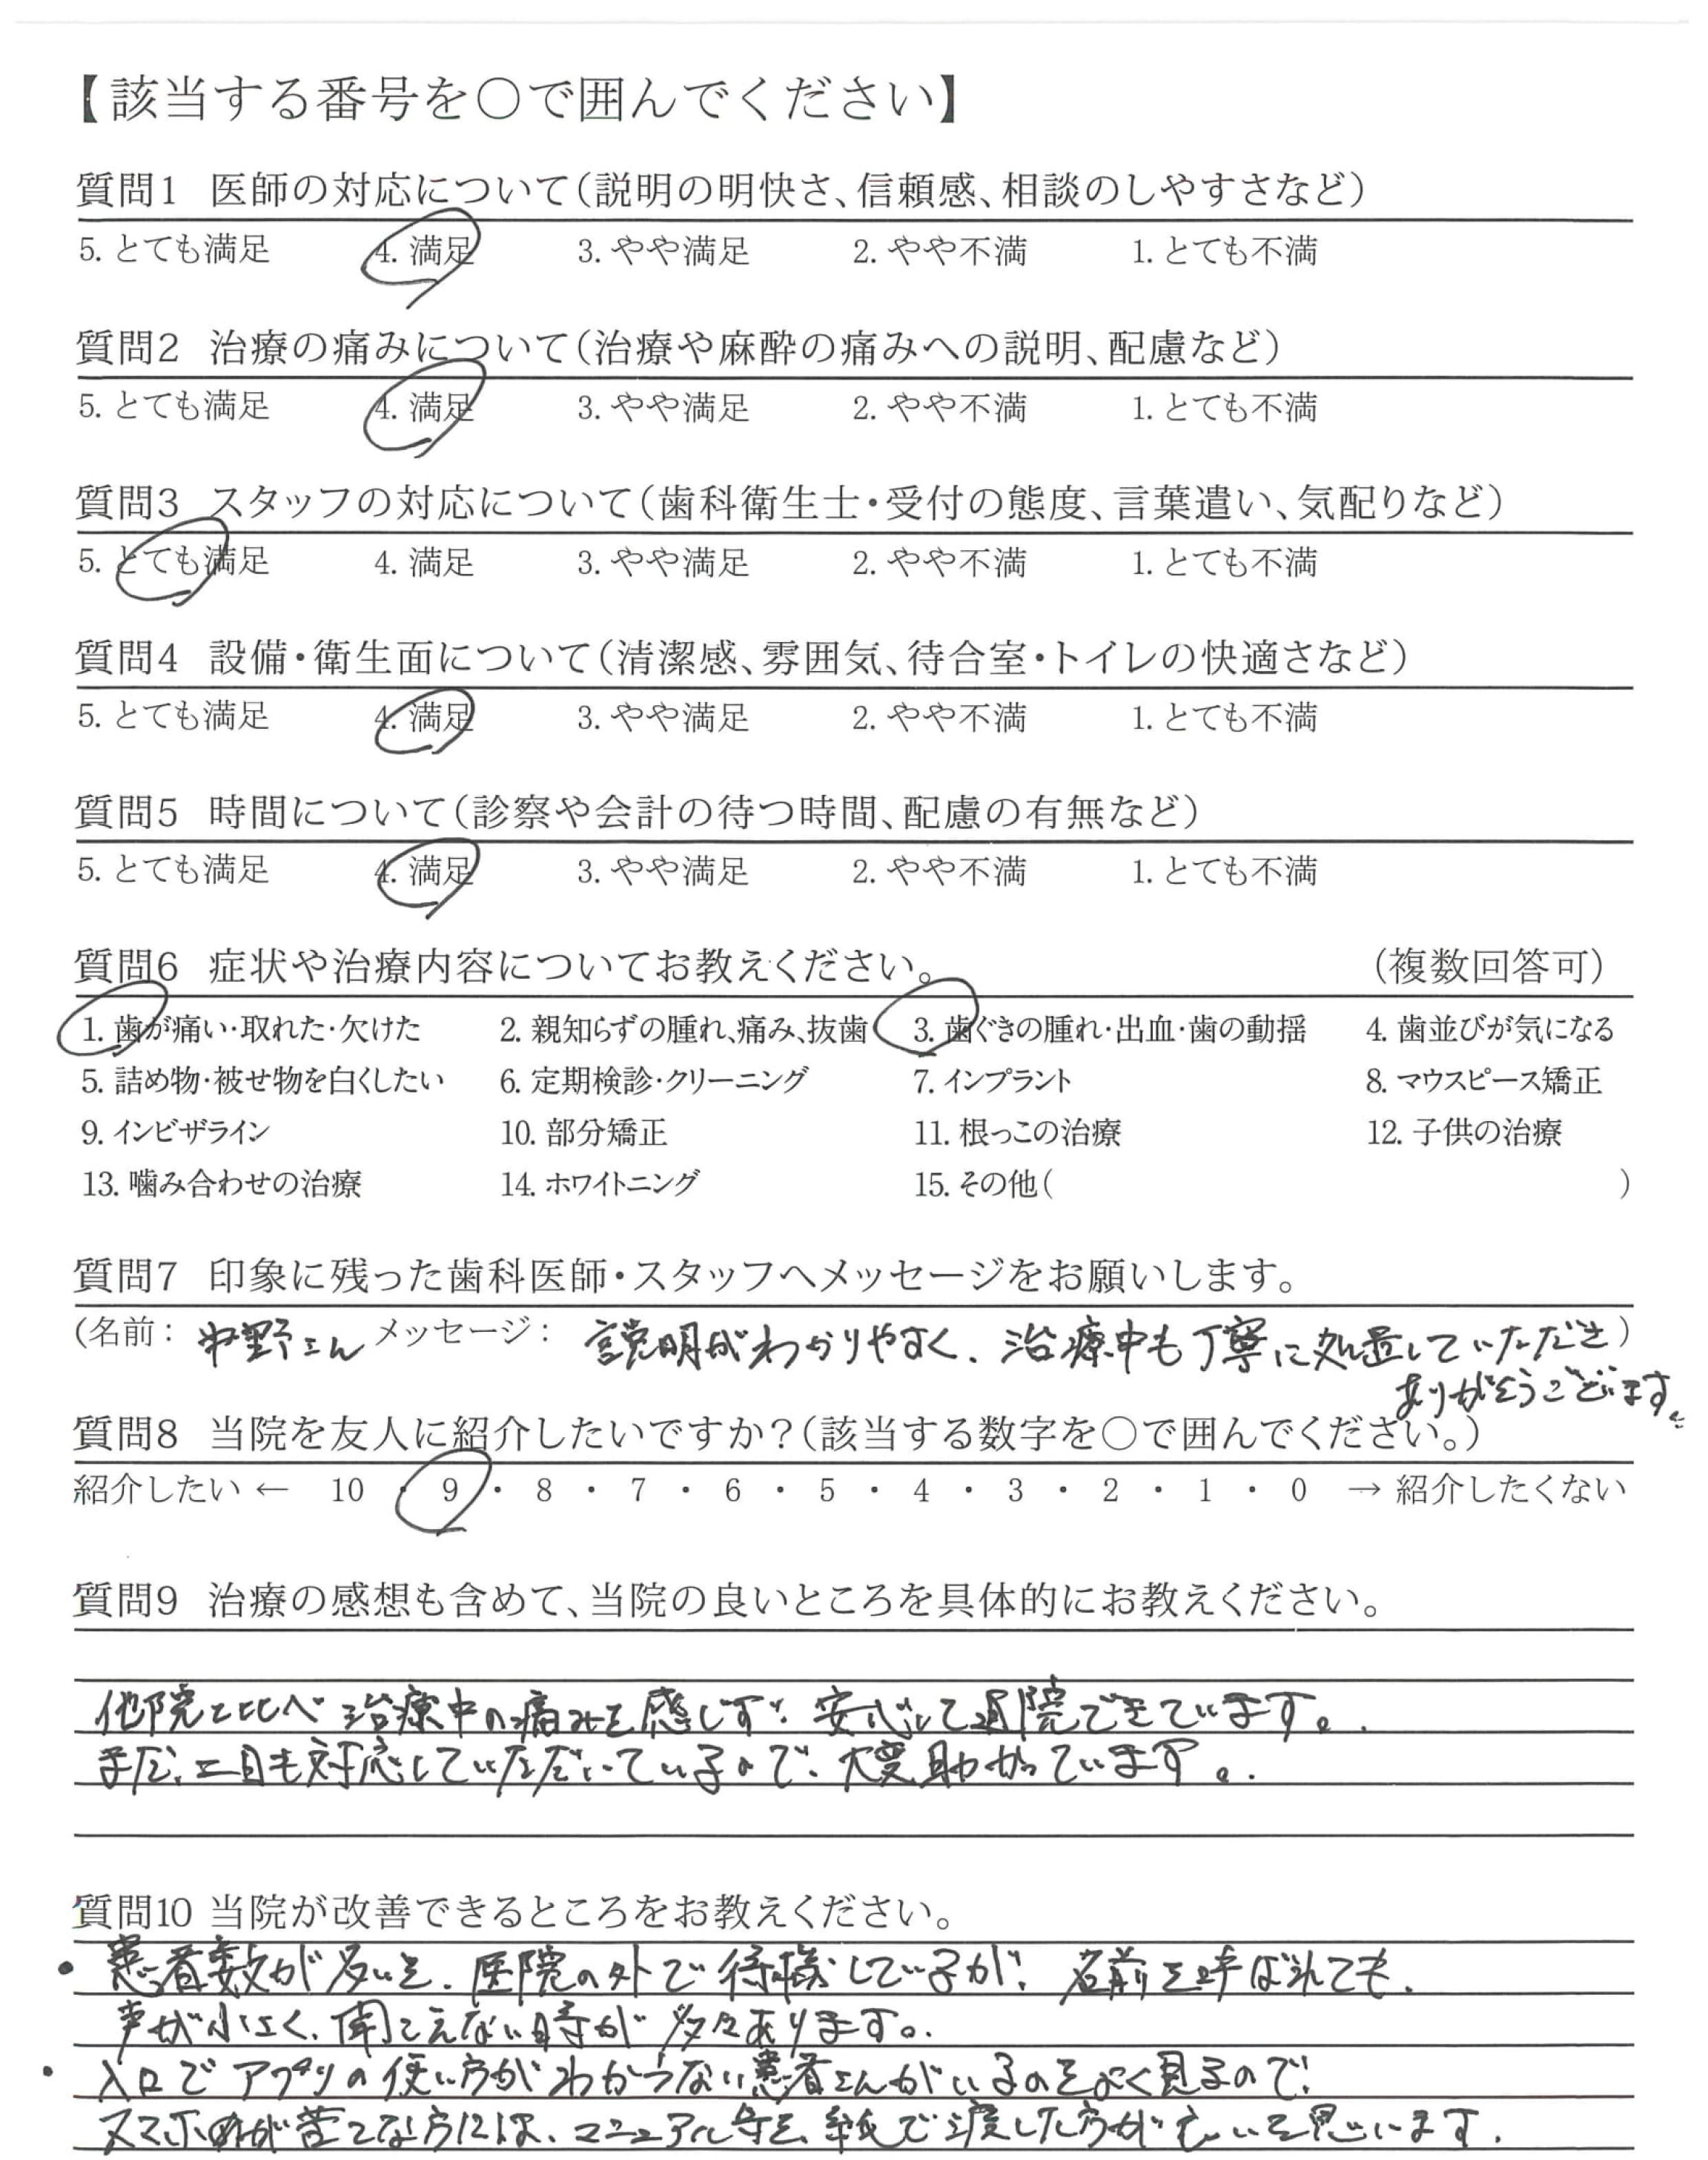 【該当する番号を○で囲んでください】
質問1 医師の対応について(説明の明快さ、信頼感、相談のしやすさなど)
5. とても満足 4. 満足 3. やや満足 2. やや不満 1. とても不満
質問2 治療の痛みについて(治療や麻酔の痛みへの説明、配慮など)
5. とても満足 4. 満足 3. やや満足 2. やや不満 1. とても不満
質問3 スタッフの対応について(歯科衛生士・受付の態度、言葉遣い、気配りなど)
5. とても満足 4. 満足 3. やや満足 2. やや不満 1. とても不満
質問4 設備・衛生面について(清潔感、雰囲気、待合室・トイレの快適さなど)
5. とても満足 4. 満足 3. やや満足 2. やや不満 1. とても不満
質問5 時間について(診察や会計の待つ時間、配慮の有無など)
5. とても満足 4. 満足 3. やや満足 2. やや不満 1. とても不満
質問6 症状や治療内容についてお教えください。 (複数回答可)
1. 歯が痛い・取れた・欠けた 2. 親知らずの腫れ、痛み、抜歯 3. 歯ぐきの腫れ・出血・歯の動揺 4. 歯並びが気になる
5. 詰め物・被せ物を白くしたい 6. 定期検診・クリーニング 7. インプラント 8. マウスピース矯正
9. インビザライン 10. 部分矯正 11. 根っこの治療 12. 子供の治療
13. 噛み合わせの治療 14. ホワイトニング 15. その他( )
質問7 印象に残った歯科医師・スタッフへメッセージをお願いします。
(名前: 中野さん メッセージ: 説明がわかりやすく、治療中も丁寧に処置していただき)
ありがとうございます。
質問8 当院を友人に紹介したいですか?(該当する数字を○で囲んでください。)
紹介したい ← 10 ・ 9 ・ 8 ・ 7 ・ 6 ・ 5 ・ 4 ・ 3 ・ 2 ・ 1 ・ 0 → 紹介したくない
質問9 治療の感想も含めて、当院の良いところを具体的にお教えください。
他院と比べ治療中の痛みを感じず、安心して通院できています。
また、土日も対応していただいているので、大変助かっています。
質問10 当院が改善できるところをお教えください。
・患者数が多いと、医院の外で待機しているが、名前を呼ばれても、
声が小さく、聞こえない時が多々あります。
・入口でアプリの使い方がわからない患者さんがいるのをよく見るので、
スマホが苦手な方には、マニュアル等を紙で渡した方が良いと思います。